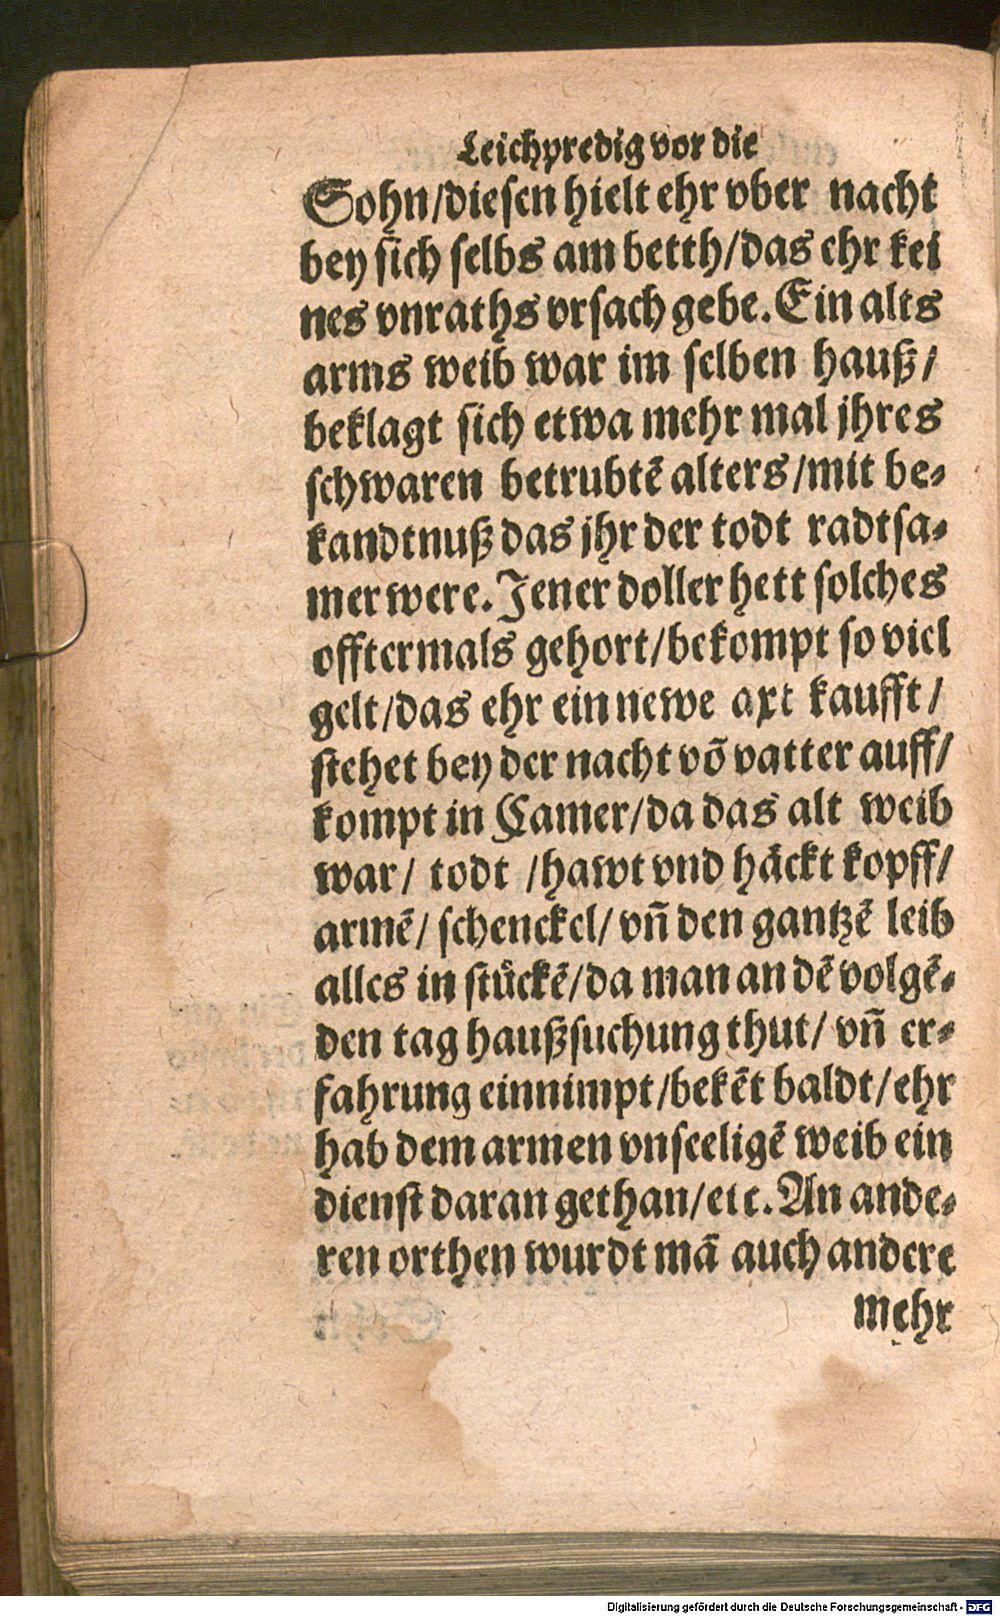 Leichpredig vor die
Sohn/diesen hielt ehr vber nacht
bey sich selbs am betth/das ehr kei
nes vnraths vrsach gebe. Ein alts
arms weib war im selben hauß/
beklagt sich etwa mehr mal jhres
schwaren betrubtẽ alters/mit be-
kandtnuß das jhr der todt radtsa-
mer were. Jener doller hett solches
offtermals gehort/bekompt so viel
gelt/das ehr ein newe axt kaufft/
stehet bey der nacht võ vatter auff/
kompt in Camer/da das alt weib
war/ todt /hawt vnd häckt kopff/
armẽ/ schenckel/ vñ den gantzẽ leib
alles in stückẽ/da man an dẽ volgẽ-
den tag haußsuchung thut/ vñ er-
fahrung einnimpt/bekẽt baldt/ehr
hab dem armen vnseeligẽ weib ein
dienst daran gethan/etc. An ande-
ren orthen wurdt mã auch andere
mehr
Digitalisierung gefördert durch die Deutsche Forschungsgemeinschaft - DFG